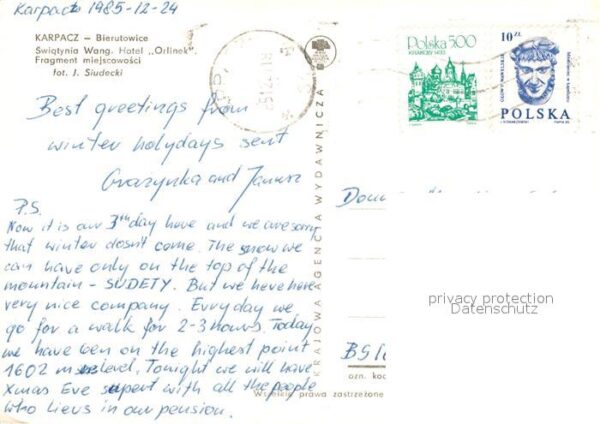 Karpacz 1985-12-24
KARPACZ – Bierutowice
Świątynia Wang. Hotel „Orlinek".
Fragment miejscowości
fot. J. Siudecki
Polska 500
KRAKÓW 1493
10 ZŁ
POLSKA
Best greetings from
winter holydays sent
Grażynka and Janusz
P.S.
Now it is our 3th day here and we are sorry
that winter dosn't come. The snow we
can have only on the top of the
mountain - SUDETY. But we have here
very nice company. Evryday we
go for a walk for 2-3 hours. Today
we have ben on the highest point
1602 m level. Tonight we will have
Xmas Eve supert with all the people
who lievs in our pension.
KRAJOWA AGENCJA WYDAWNICZA
privacy protection
Datenschutz
ozn. kod
Wszelkie prawa zastrzeżone